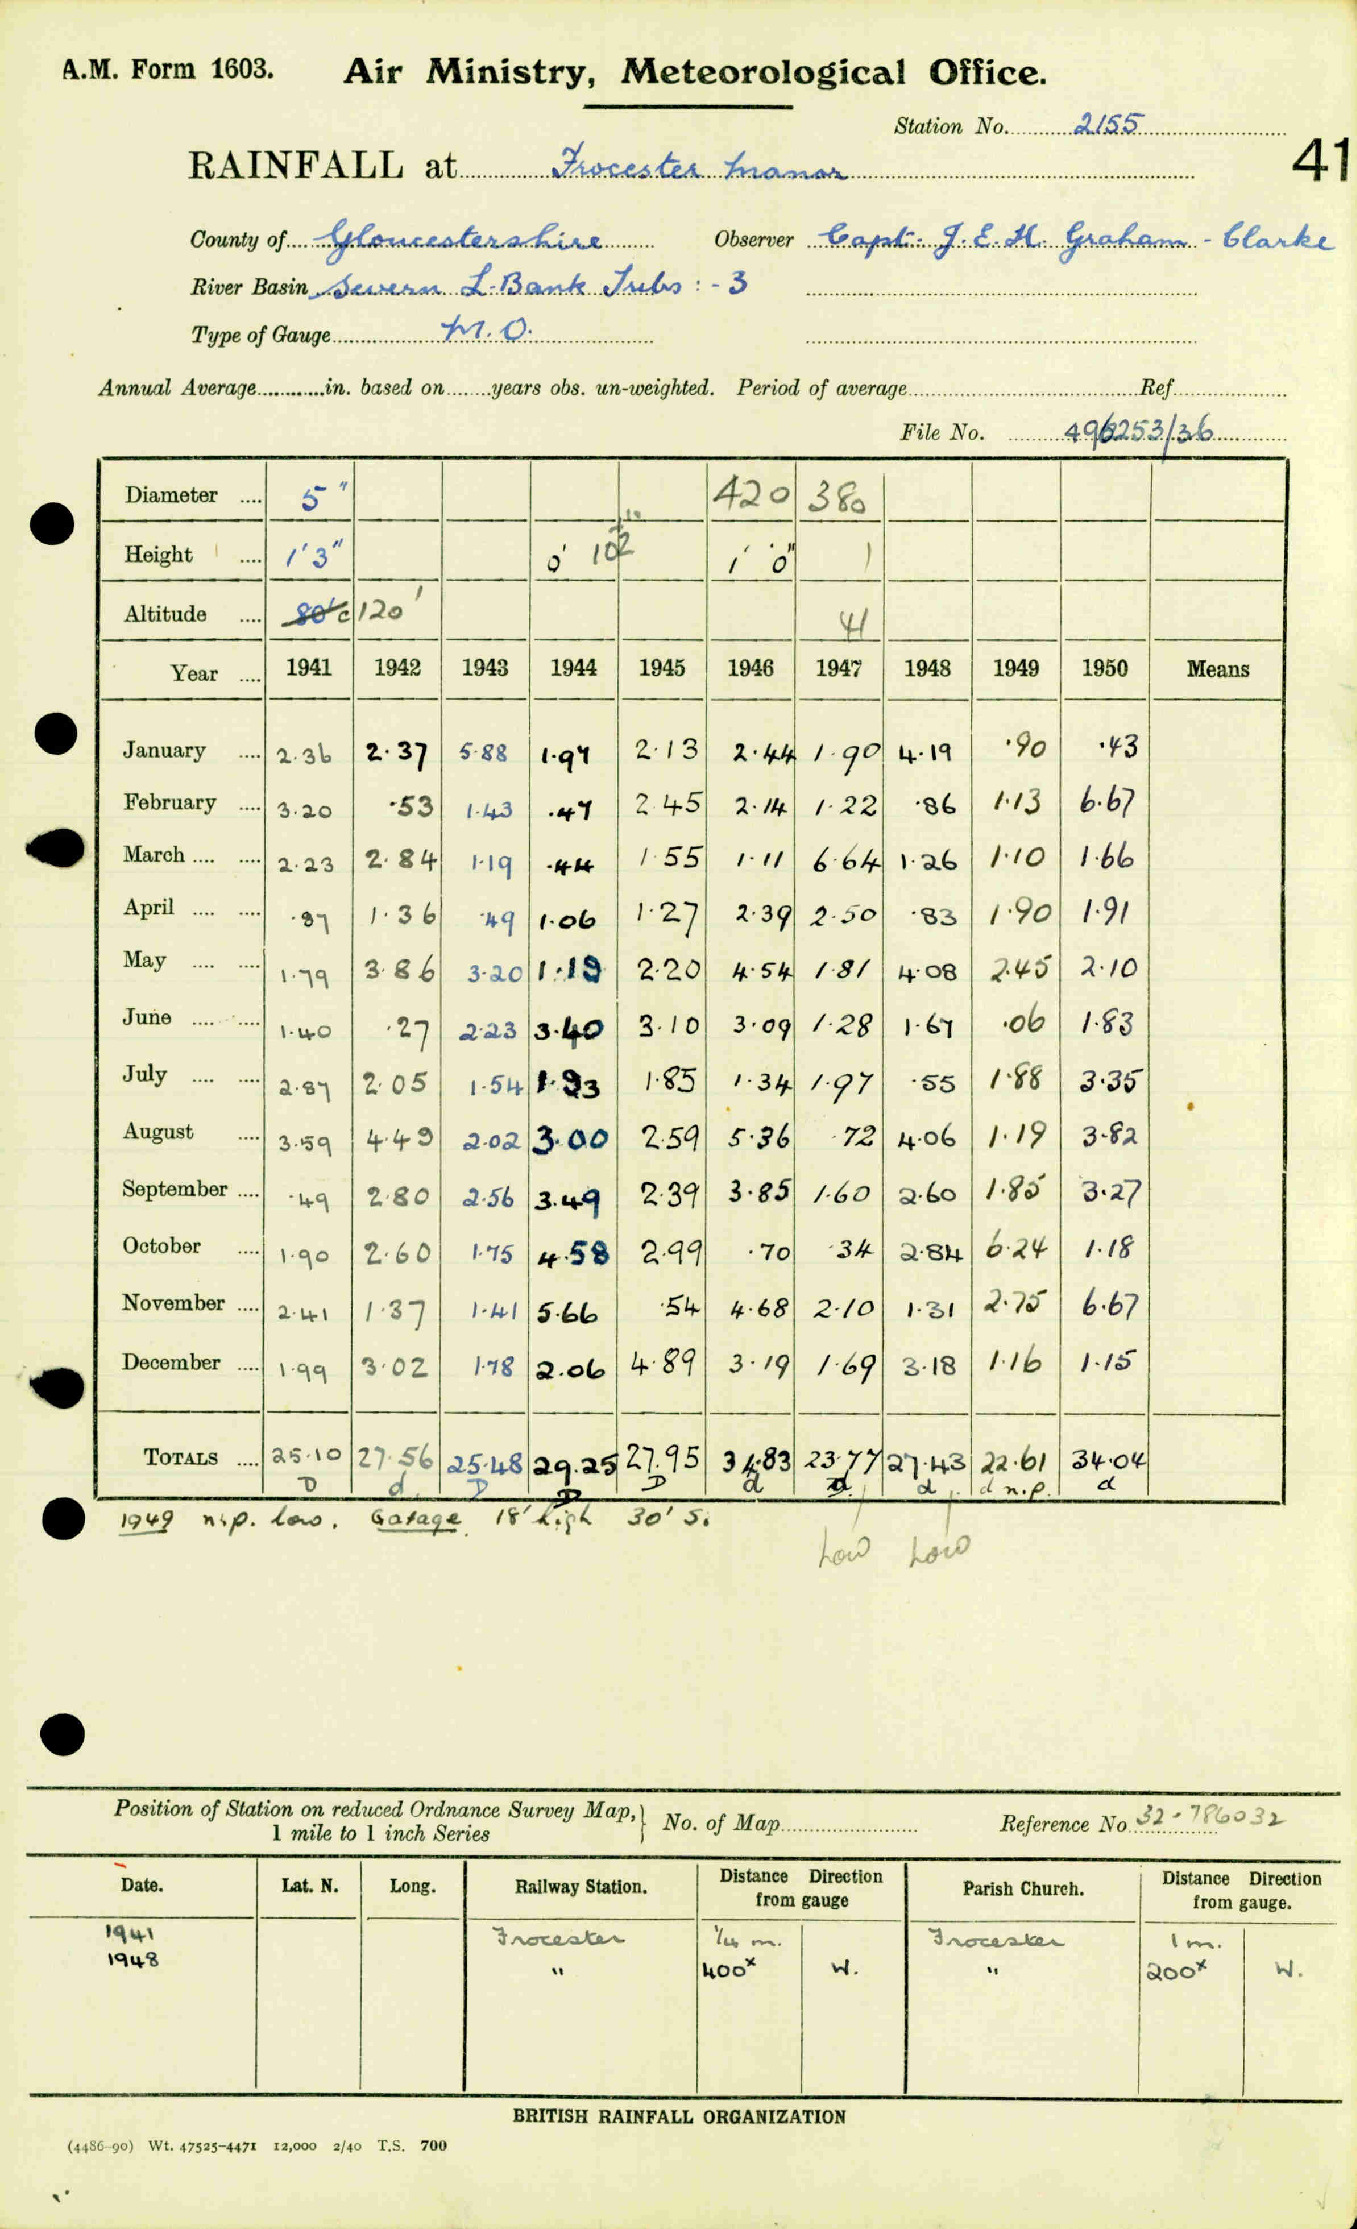 A.M. Form 1603. Air Ministry, Meteorological Office.
Station No. 2155
41
RAINFALL at Frocester Manor
County of Gloucestershire Observer Capt. J. E. H. Graham - Clarke
River Basin Severn L. Bank Tribs :- 3
Type of Gauge M. O.
Annual Average in. based on years obs. un-weighted. Period of average Ref
File No. /36
Diameter 5" 420 380
Height 1'3" 0' 10 1' 0" 1
Altitude 80' c 120' 41
Year 1941 1942 1943 1944 1945 1946 1947 1948 1949 1950 Means
January 2.36 2.37 5.88 1.97 2.13 2.44 1.90 4.19 .90 .43
February 3.20 .53 1.43 .47 2.45 2.14 1.22 .86 1.13 6.67
March 2.23 2.84 1.19 .44 1.55 1.11 6.64 1.26 1.10 1.66
April .87 1.36 .49 1.06 1.27 2.39 2.50 .83 1.90 1.91
May 1.79 3.86 3.20 1.19 2.20 4.54 1.81 4.08 2.45 2.10
June 1.40 .27 2.23 3.40 3.10 3.09 1.28 1.67 .06 1.83
July 2.87 2.05 1.54 1.93 1.85 1.34 1.97 .55 1.88 3.35
August 3.59 4.49 2.02 3.00 2.59 5.36 .72 4.06 1.19 3.82
September .49 2.80 2.56 3.49 2.39 3.85 1.60 2.60 1.85 3.27
October 1.90 2.60 1.75 4.58 2.99 .70 .34 2.84 6.24 1.18
November 2.41 1.37 1.41 5.66 .54 4.68 2.10 1.31 2.75 6.67
December 1.99 3.02 1.78 2.06 4.89 3.19 1.69 3.18 1.16 1.15
TOTALS 25.10 27.56 25.48 29.25 27.95 34.83 23.77 27.43 22.61 34.04
D d D D D d d d d n.p. d
1949 n.p. low. Garage 18' high 30' S.
Low Low
Position of Station on reduced Ordnance Survey Map,
1 mile to 1 inch Series
No. of Map Reference No 32-786032
Date. Lat. N. Long. Railway Station. Distance Direction from gauge Parish Church. Distance Direction from gauge.
1941 Frocester ¼ m. Frocester 1 m.
1948 " 400x W. " 200x W.
BRITISH RAINFALL ORGANIZATION
(4486-90) Wt. 47525-4471 12,000 2/40 T.S. 700